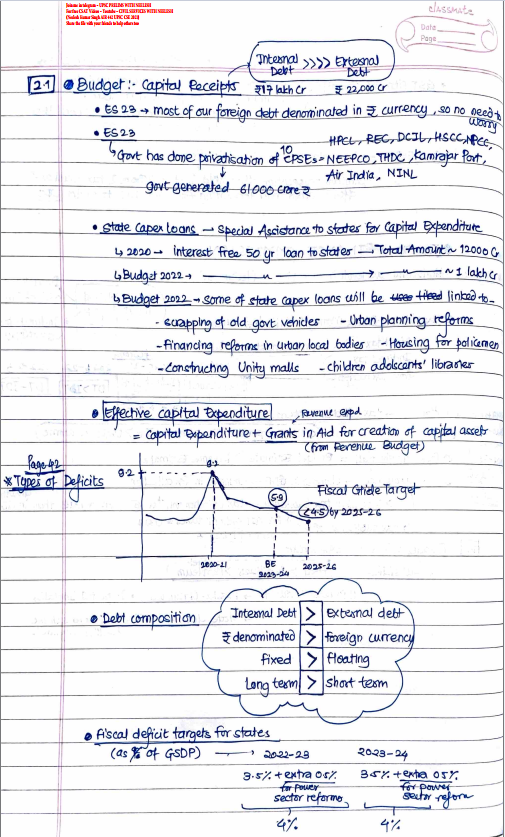 Join me in telegram - UPSC PRELIMS WITH NEELESH
Sectlon CSAT Videos - Youtube - CIVIL SERVICES WITH NEELESH
(Neelesh Kumar Singh AIR 442 UPSC CSE 2021)
Share the file with your friends to help others too
classmate
Date
Page
Internal Debt >>>> External Debt
₹17 lakh Cr ₹ 22,000 Cr
2.1 Budget :- Capital Receipts
• ES 23 → most of our foreign debt denominated in ₹ currency, so no need to worry
• ES 23
HPCL, REC, DCIL, HSCC, NPCC,
↳ Govt has done privatisation of 10 CPSEs = NEEPCO, THDC, Kamrajar Port,
Air India, NINL
govt generated 61000 crore ₹
• State Capex loans → Special Assistance to states for Capital Expenditure
↳ 2020 → interest free 50 yr loan to states → Total Amount ~ 12000 Cr
↳ Budget 2022 → —〃— → —〃— ~ 1 lakh Cr
↳ Budget 2022 → some of state capex loans will be linked to -
- scrapping of old govt vehicles - Urban planning reforms
- Financing reforms in urban local bodies - Housing for policemen
- Constructing Unity malls - children adolscants' libraries
• Effective capital Expenditure
Revenue expd
= Capital Expenditure + Grants in Aid for creation of capital assets
(from Revenue Budget)
Page 42
* Types of Deficits
9.2
9.2
5.9
Fiscal Glide Target
<4.5 by 2025-26
2020-21 BE 2023-24 2025-26
• Debt composition
Internal Debt > External debt
₹ denominated > foreign currency
fixed > floating
Long term > short term
• Fiscal deficit targets for states
(as % of GSDP) → 2022-23 2023-24
3.5% + extra 0.5% 3.5% + extra 0.5%
for power sector reforms for power sector reform
4% 4%